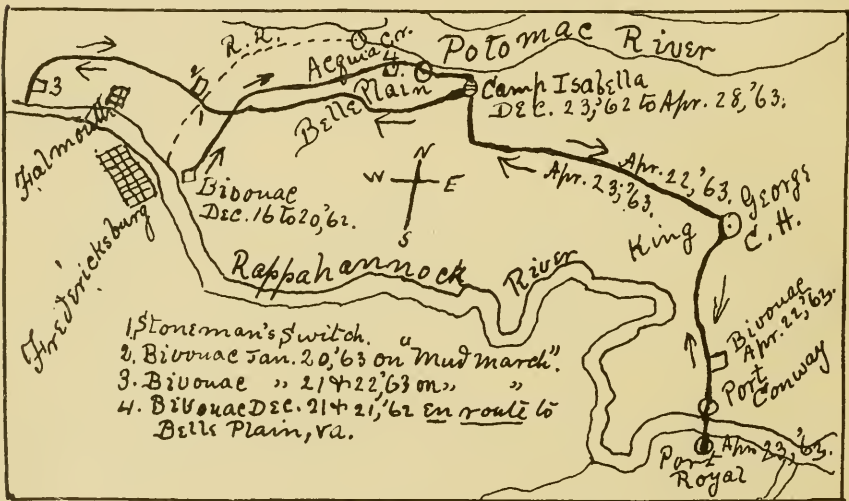 Potomac River
R.R.
Acquia Cr.
4
3
2
1
Belle Plain
Camp Isabella
DEC. 23,'62 to Apr. 28,'63.
Falmouth
Fredericksburg
Bivouac
Dec. 16 to 20,'62.
N
W E
S
Apr. 22,'63.
Apr. 23,'63.
King George
C. H.
Rappahannock River
Bivouac
Apr. 22,'63.
Port
Conway
Port
Royal
Apr. 23,'63.
1. Stoneman's Switch.
2. Bivouac Jan. 20,'63 on "Mud march".
3. Bivouac " 21 + 22,'63 on " "
4. Bivouac Dec. 21 + 21,'62 En route to
Belle Plain, Va.